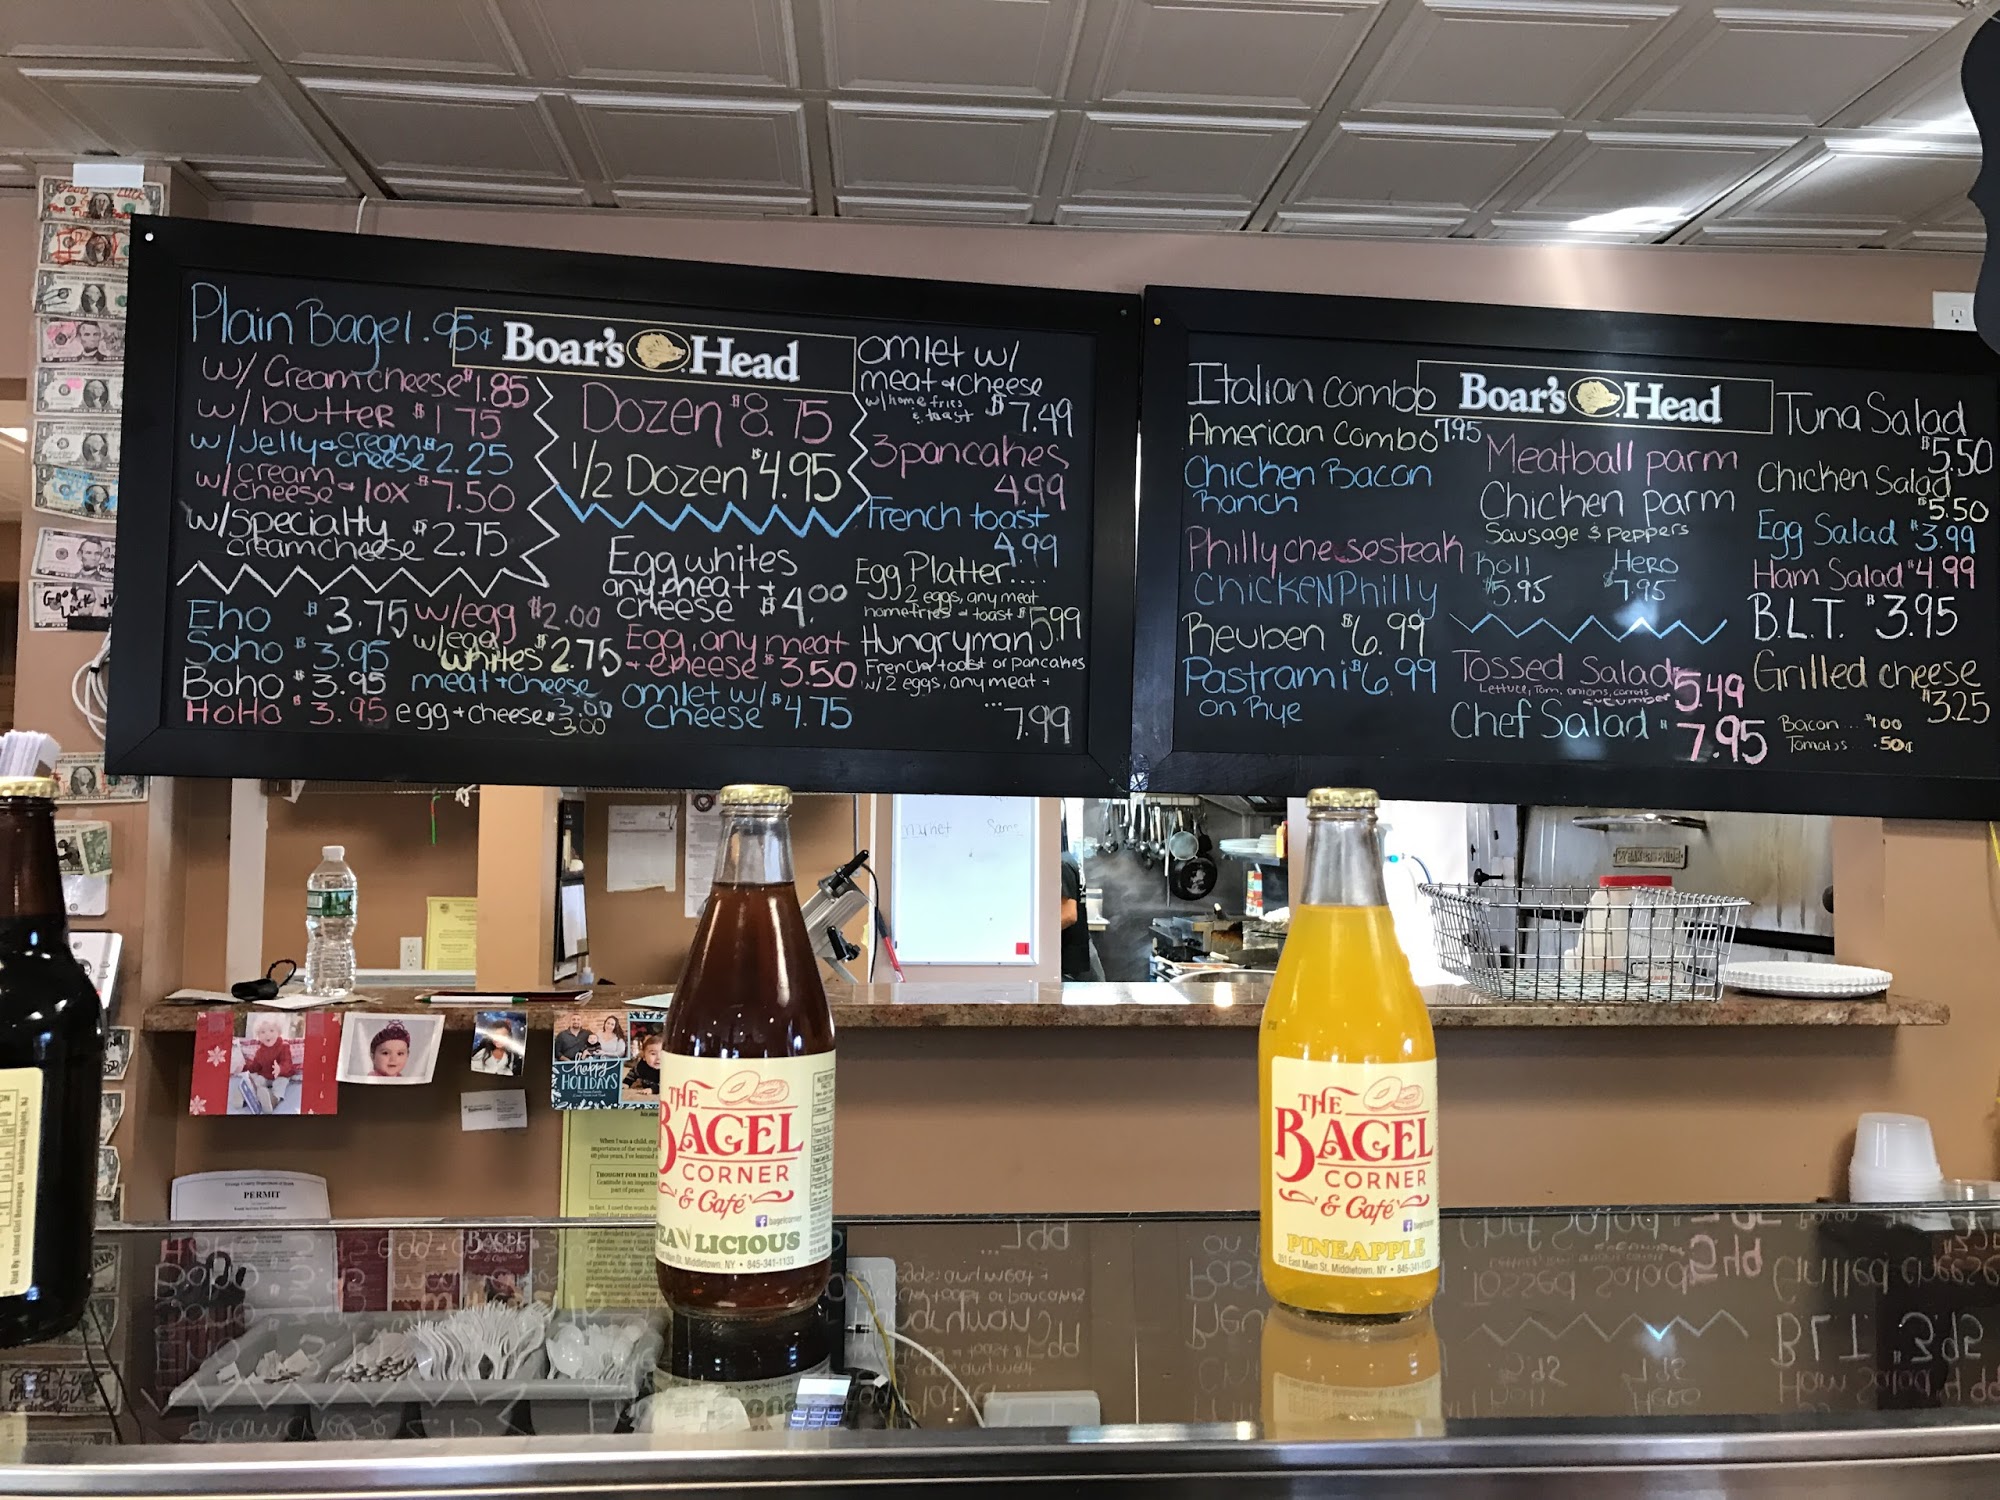 Plain Bagel .95¢
w/ Cream cheese $1.85
w/ butter $1.75
w/ Jelly & cream cheese $2.25
w/ cream
cheese & lox $7.50
w/ specialty
cream cheese $2.75
Eho $3.75
Soho $3.95
Boho $3.95
HoHo $3.95
w/egg $2.00
w/egg
whites $2.75
meat + cheese
3.00
egg + cheese $3.00
Boar's Head
Dozen $8.75
1/2 Dozen $4.95
Egg whites
any meat +
cheese $4.00
Egg, any meat
+ cheese $3.50
omlet w/
cheese $4.75
omlet w/
meat & cheese
w/ home fries
& toast $7.49
3 pancakes
4.99
French toast
4.99
Egg Platter....
2 eggs, any meat
homefries + toast $5.99
Hungryman
French toast or pancakes
w/ 2 eggs, any meat +
...
7.99
Italian Combo
American Combo 7.95
Chicken Bacon
Ranch
Philly cheesesteak
Chicken Philly
Reuben $6.99
Pastrami $6.99
on Rye
Boar's Head
Meatball parm
Chicken parm
Sausage & Peppers
Roll Hero
$5.95 $7.95
Tossed Salad
Lettuce, Tom, onions, carrots
cucumber 5.49
Chef Salad
7.95
Tuna Salad
$5.50
Chicken Salad
$5.50
Egg Salad $3.99
Ham Salad $4.99
B.L.T. $3.95
Grilled cheese
$3.25
Bacon ... $1.00
Tomatos .50¢
happy
HOLIDAYS
2016
PERMIT
When I was a child, my
THOUGHT FOR THE DA
THE
BAGEL
CORNER
& Café
bagelcorner
LICIOUS
Main St. Middletown, NY • 845-341-1133
THE
BAGEL
CORNER
& Café
bagelcorner
PINEAPPLE
351 East Main St. Middletown, NY • 845-341-1133